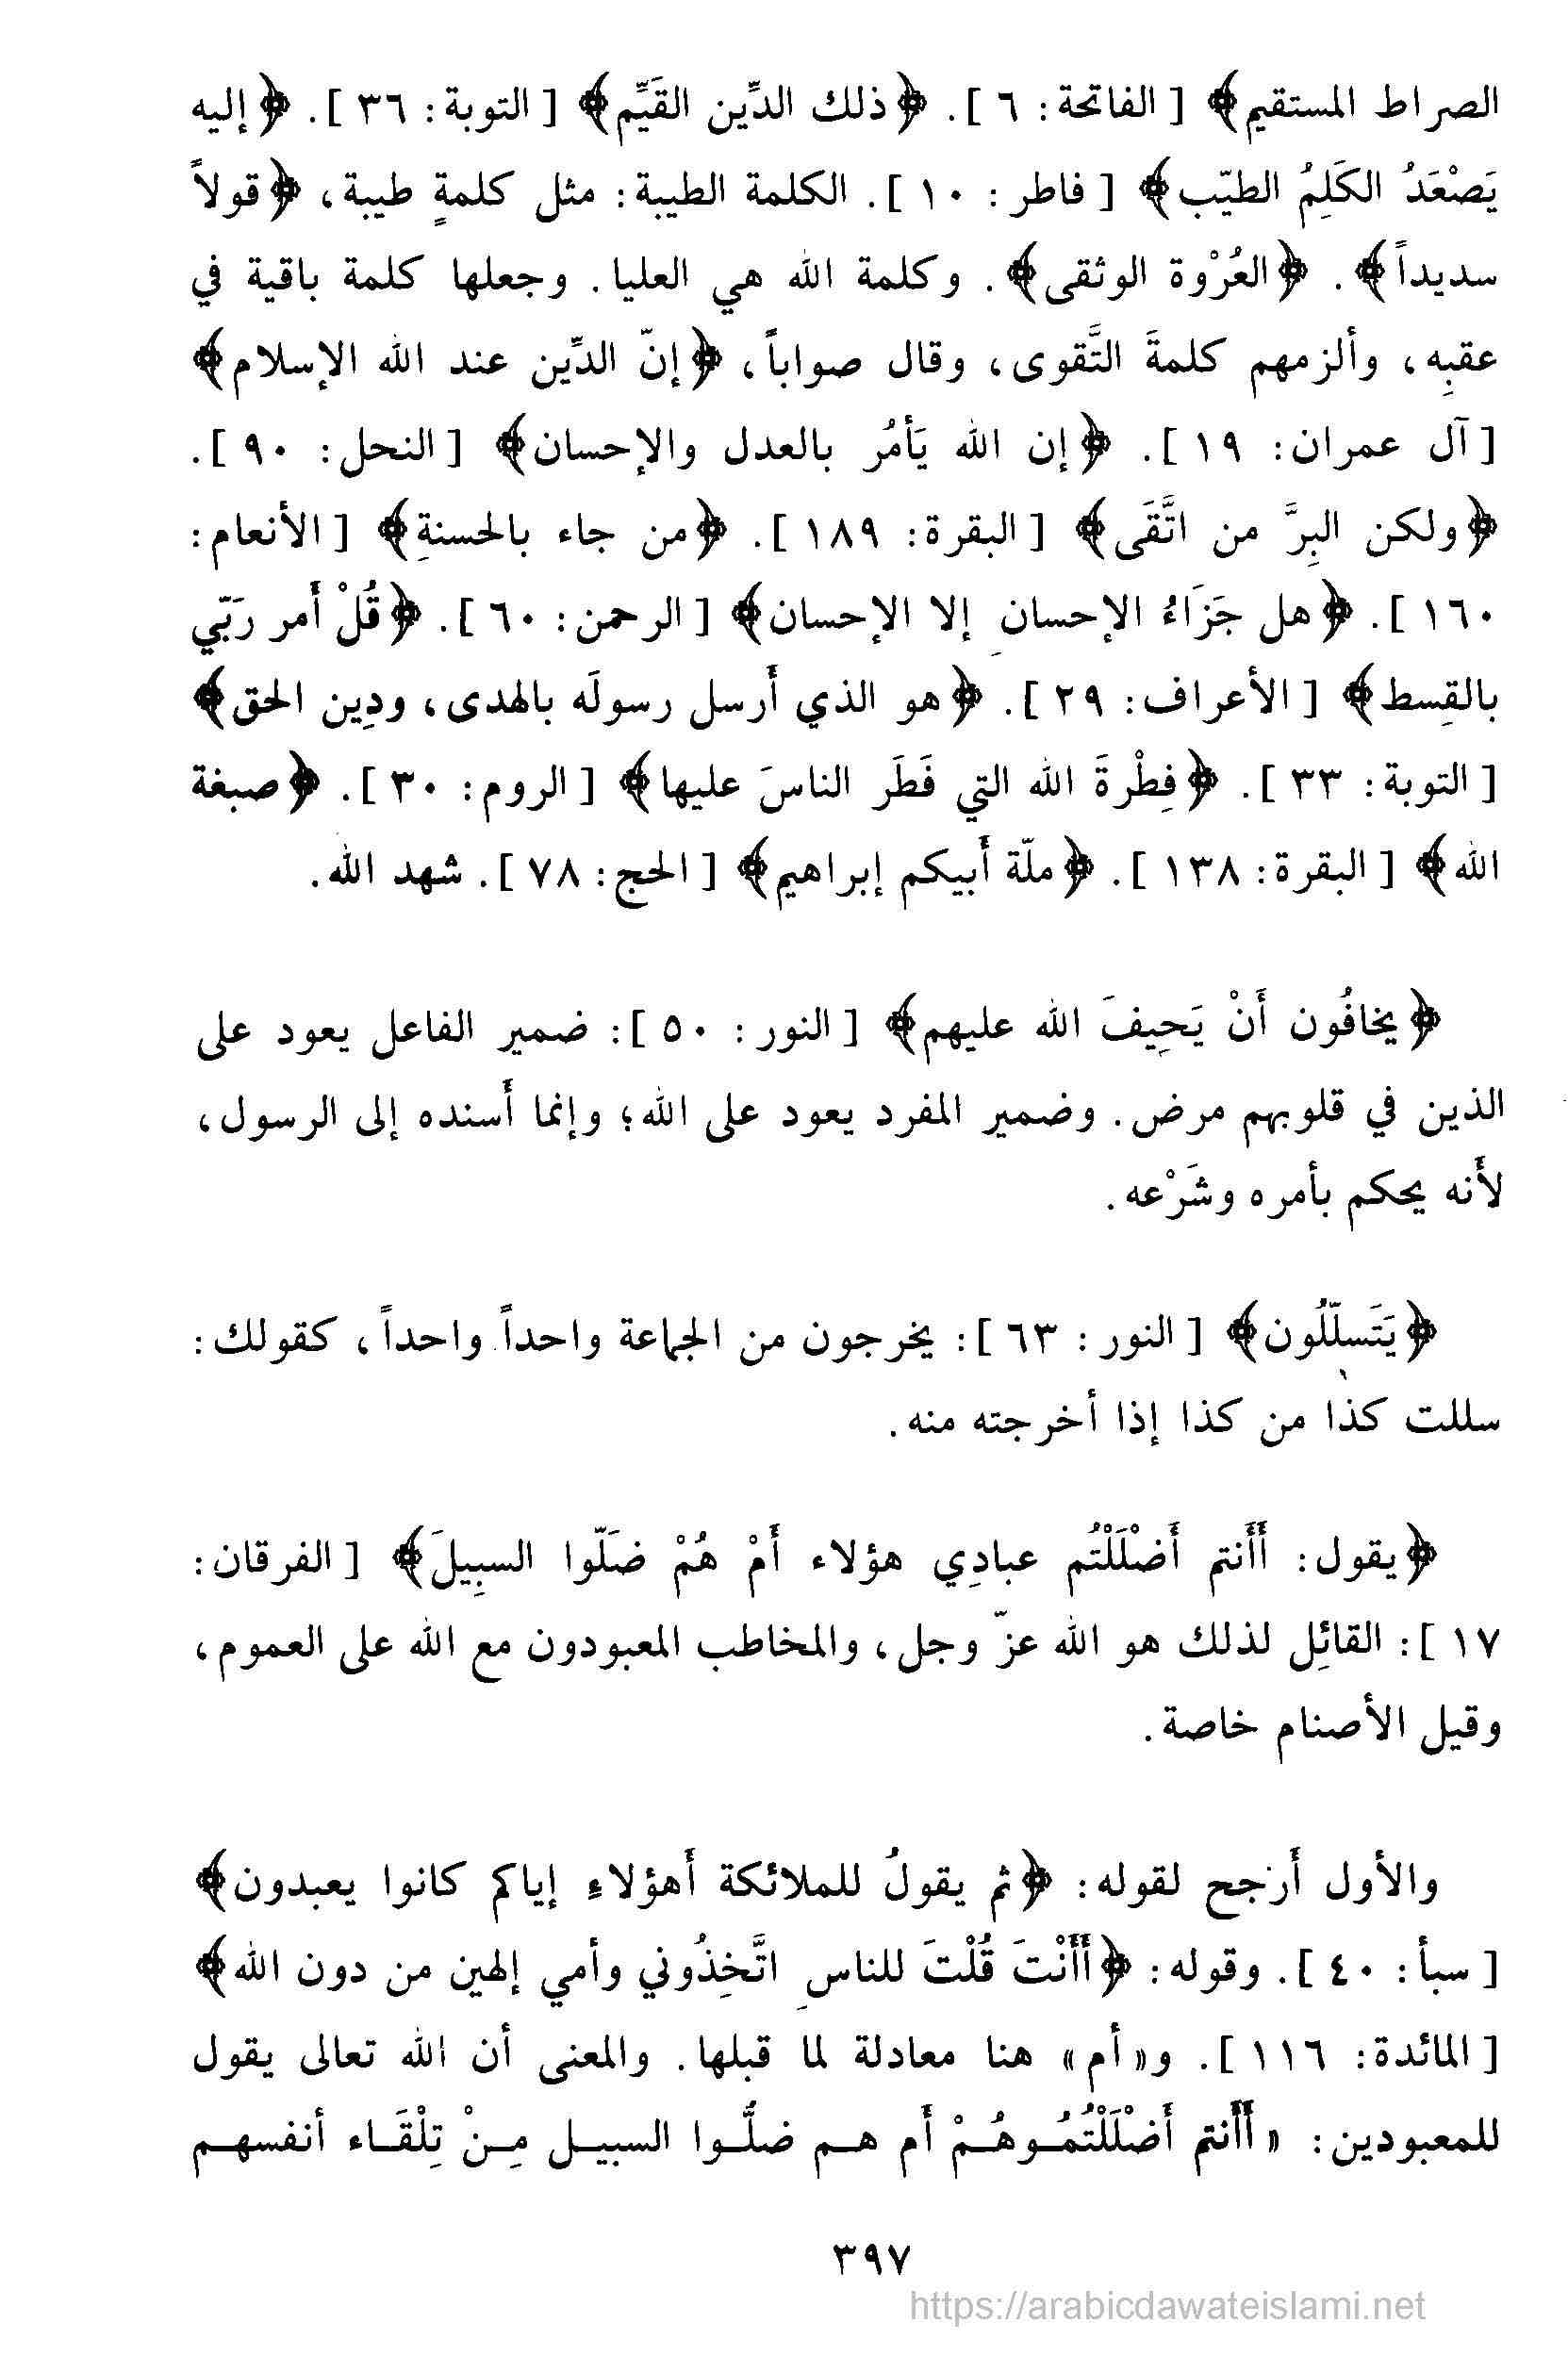 الصراط المستقيم﴾ [ الفاتحة: ٦ ]. ﴿ذلك الدِّين القَيِّم﴾ [ التوبة: ٣٦ ]. ﴿إليه
يَصْعَدُ الكَلِمُ الطيّب﴾ [ فاطر: ١٠ ]. الكلمة الطيبة: مثل كلمةٍ طيبة، ﴿قولاً
سديداً﴾. ﴿العُرْوة الوثقى﴾. وكلمة الله هي العليا. وجعلها كلمة باقية في
عقبِه، وألزمهم كلمةَ التَّقوى، وقال صواباً، ﴿إنّ الدِّين عند الله الإسلام﴾
[ آل عمران: ١٩ ]. ﴿إن الله يَأمُر بالعدل والإحسان﴾ [ النحل: ٩٠ ].
﴿ولكن البِرَّ من اتَّقَى﴾ [ البقرة: ١٨٩ ]. ﴿من جاء بالحسنةِ﴾ [ الأنعام:
١٦٠ ]. ﴿هل جَزَاءُ الإحسانِ إلا الإحسان﴾ [ الرحمن: ٦٠ ]. ﴿قُلْ أَمر رَبّي
بالقِسط﴾ [ الأعراف: ٢٩ ]. ﴿هو الذي أَرسل رسولَه بالهدى، ودِين الحق﴾
[ التوبة: ٣٣ ]. ﴿فِطْرةَ الله التي فَطَر الناسَ عليها﴾ [ الروم: ٣٠ ]. ﴿صبغة
الله﴾ [ البقرة: ١٣٨ ]. ﴿ملّة أَبيكم إبراهيم﴾ [ الحج: ٧٨ ]. شهد الله.
﴿يخافُون أَنْ يَحِيفَ الله عليهم﴾ [ النور: ٥٠ ]: ضمير الفاعل يعود على
الذين في قلوبهم مرض. وضمير المفرد يعود على الله؛ وإنما أَسنده إلى الرسول،
لأَنه يحكم بأمره وشَرْعه.
﴿يَتَسلّلُون﴾ [ النور: ٦٣ ]: يخرجون من الجماعة واحداً واحداً، كقولك:
سللت كذا من كذا إذا أخرجته منه.
﴿يقول: أَأَنتم أَضْلَلْتُم عبادِي هؤلاء أَمْ هُمْ ضَلّوا السبِيلَ﴾ [ الفرقان:
١٧ ]: القائِل لذلك هو الله عزّ وجل، والمخاطب المعبودون مع الله على العموم،
وقيل الأصنام خاصة.
والأول أَرجح لقوله: ﴿ثم يقولُ للملائكة أَهؤلاءِ إياكم كانوا يعبدون﴾
[ سبأ: ٤٠ ]. وقوله: ﴿أَأَنْتَ قُلْتَ للناسِ اتَّخِذُوني وأمي إلهين من دون الله﴾
[ المائدة: ١١٦ ]. و«أم» هنا معادلة لما قبلها. والمعنى أن الله تعالى يقول
للمعبودين: «أَأَنتم أَضْلَلْتُمُـوهُـمْ أَم هـم ضلُّـوا السبيـل مِـنْ تِلْقَـاء أنفسهـم
٣٩٧
https://arabicdawateislami.net